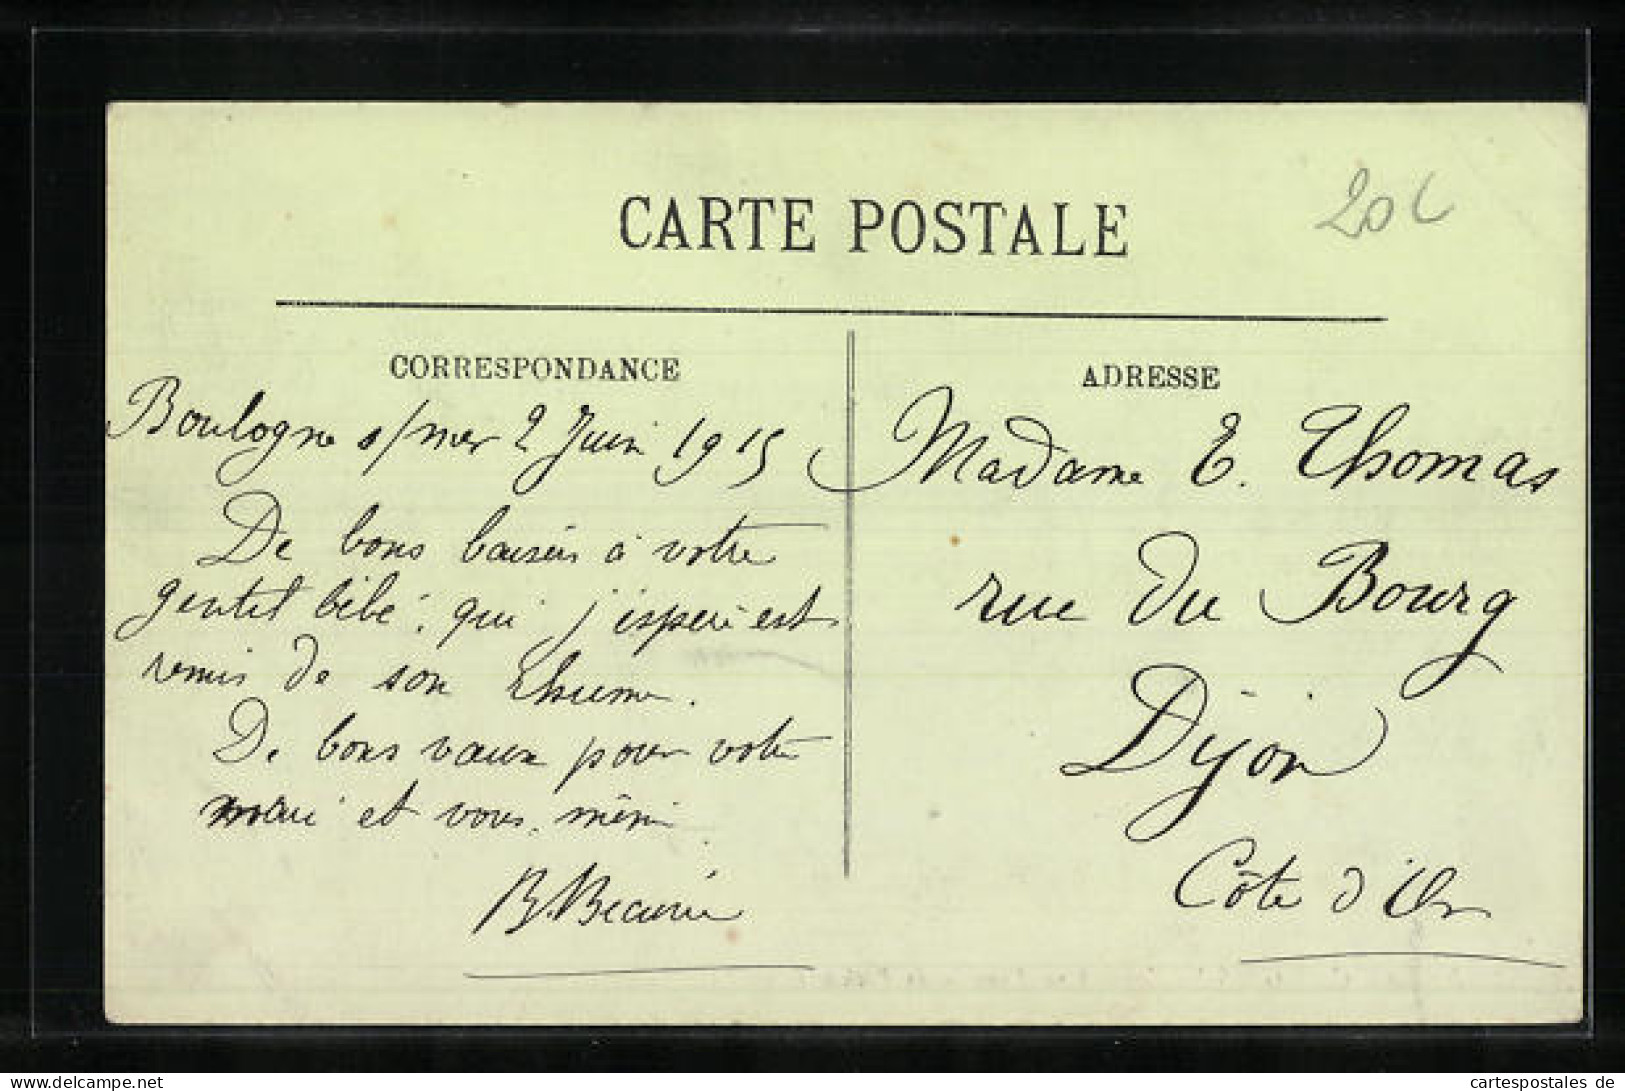 CARTE POSTALE
20c
CORRESPONDANCE
Boulogne s/mer 2 Juin 1915
De bons baisers à votre
gentil bébé, qui j'espère est
remis de son rhume.
De bons vœux pour votre
mari et vous même
ADRESSE
Madame E. Thomas
rue du Bourg
Dijon
Côte d'Or
www.delcampe.net
cartespostales de